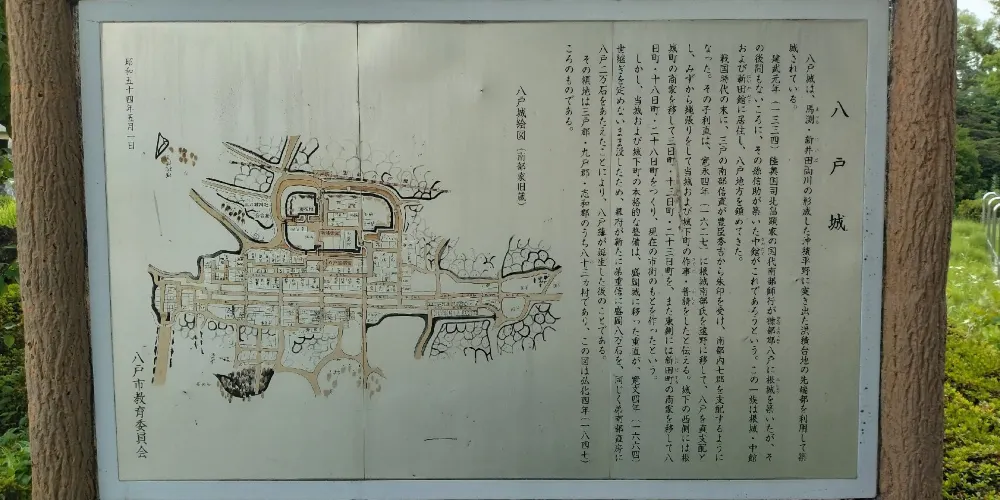 八戸城
八戸城は、馬渕・新井田両川の形成した沖積平野に突き出た洪積台地の先端部を利用して築
城されている。
建武元年（一三三四）陸奥国司北畠顕家の国代南部師行が糠部郡八戸に根城を築いたが、そ
の後間もないころに、その孫信助が築いた中館がこれであろうという。この一族は根城・中館
および新田館に居住し、八戸地方を鎮めてきた。
戦国時代の末に、三戸の南部信直が豊臣秀吉から朱印を受け、南部内七郡を支配するように
なった。その子利直は、寛永四年（一六二七）に根城南部氏を遠野に移して、八戸を直支配と
し、みずから縄張りをして当城および城下町の作事・普請をしたと伝える。城下の西側には根
城町の商家を移して三日町・十三日町・二十三日町を、また東側には新田町の商家を移して八
日町・十八日町・二十八日町をつくり、現在の市街のもとを作ったという。
しかし、当城および城下町の本格的な整備は、盛岡城に移った重直が、寛文四年（一六六四）
世継ぎを定めないまま没したため、幕府が新たに弟重信に盛岡八万石を、同じく弟南部直房に
八戸二万石をあたえたことにより、八戸藩が誕生した後のことである。
その領地は三戸郡・九戸郡・志和郡のうち八十三ヵ村であり、この図は弘化四年（一八四七）
ころのものである。
八戸城絵図（南部家旧蔵）
昭和五十四年五月一日
八戸市教育委員会